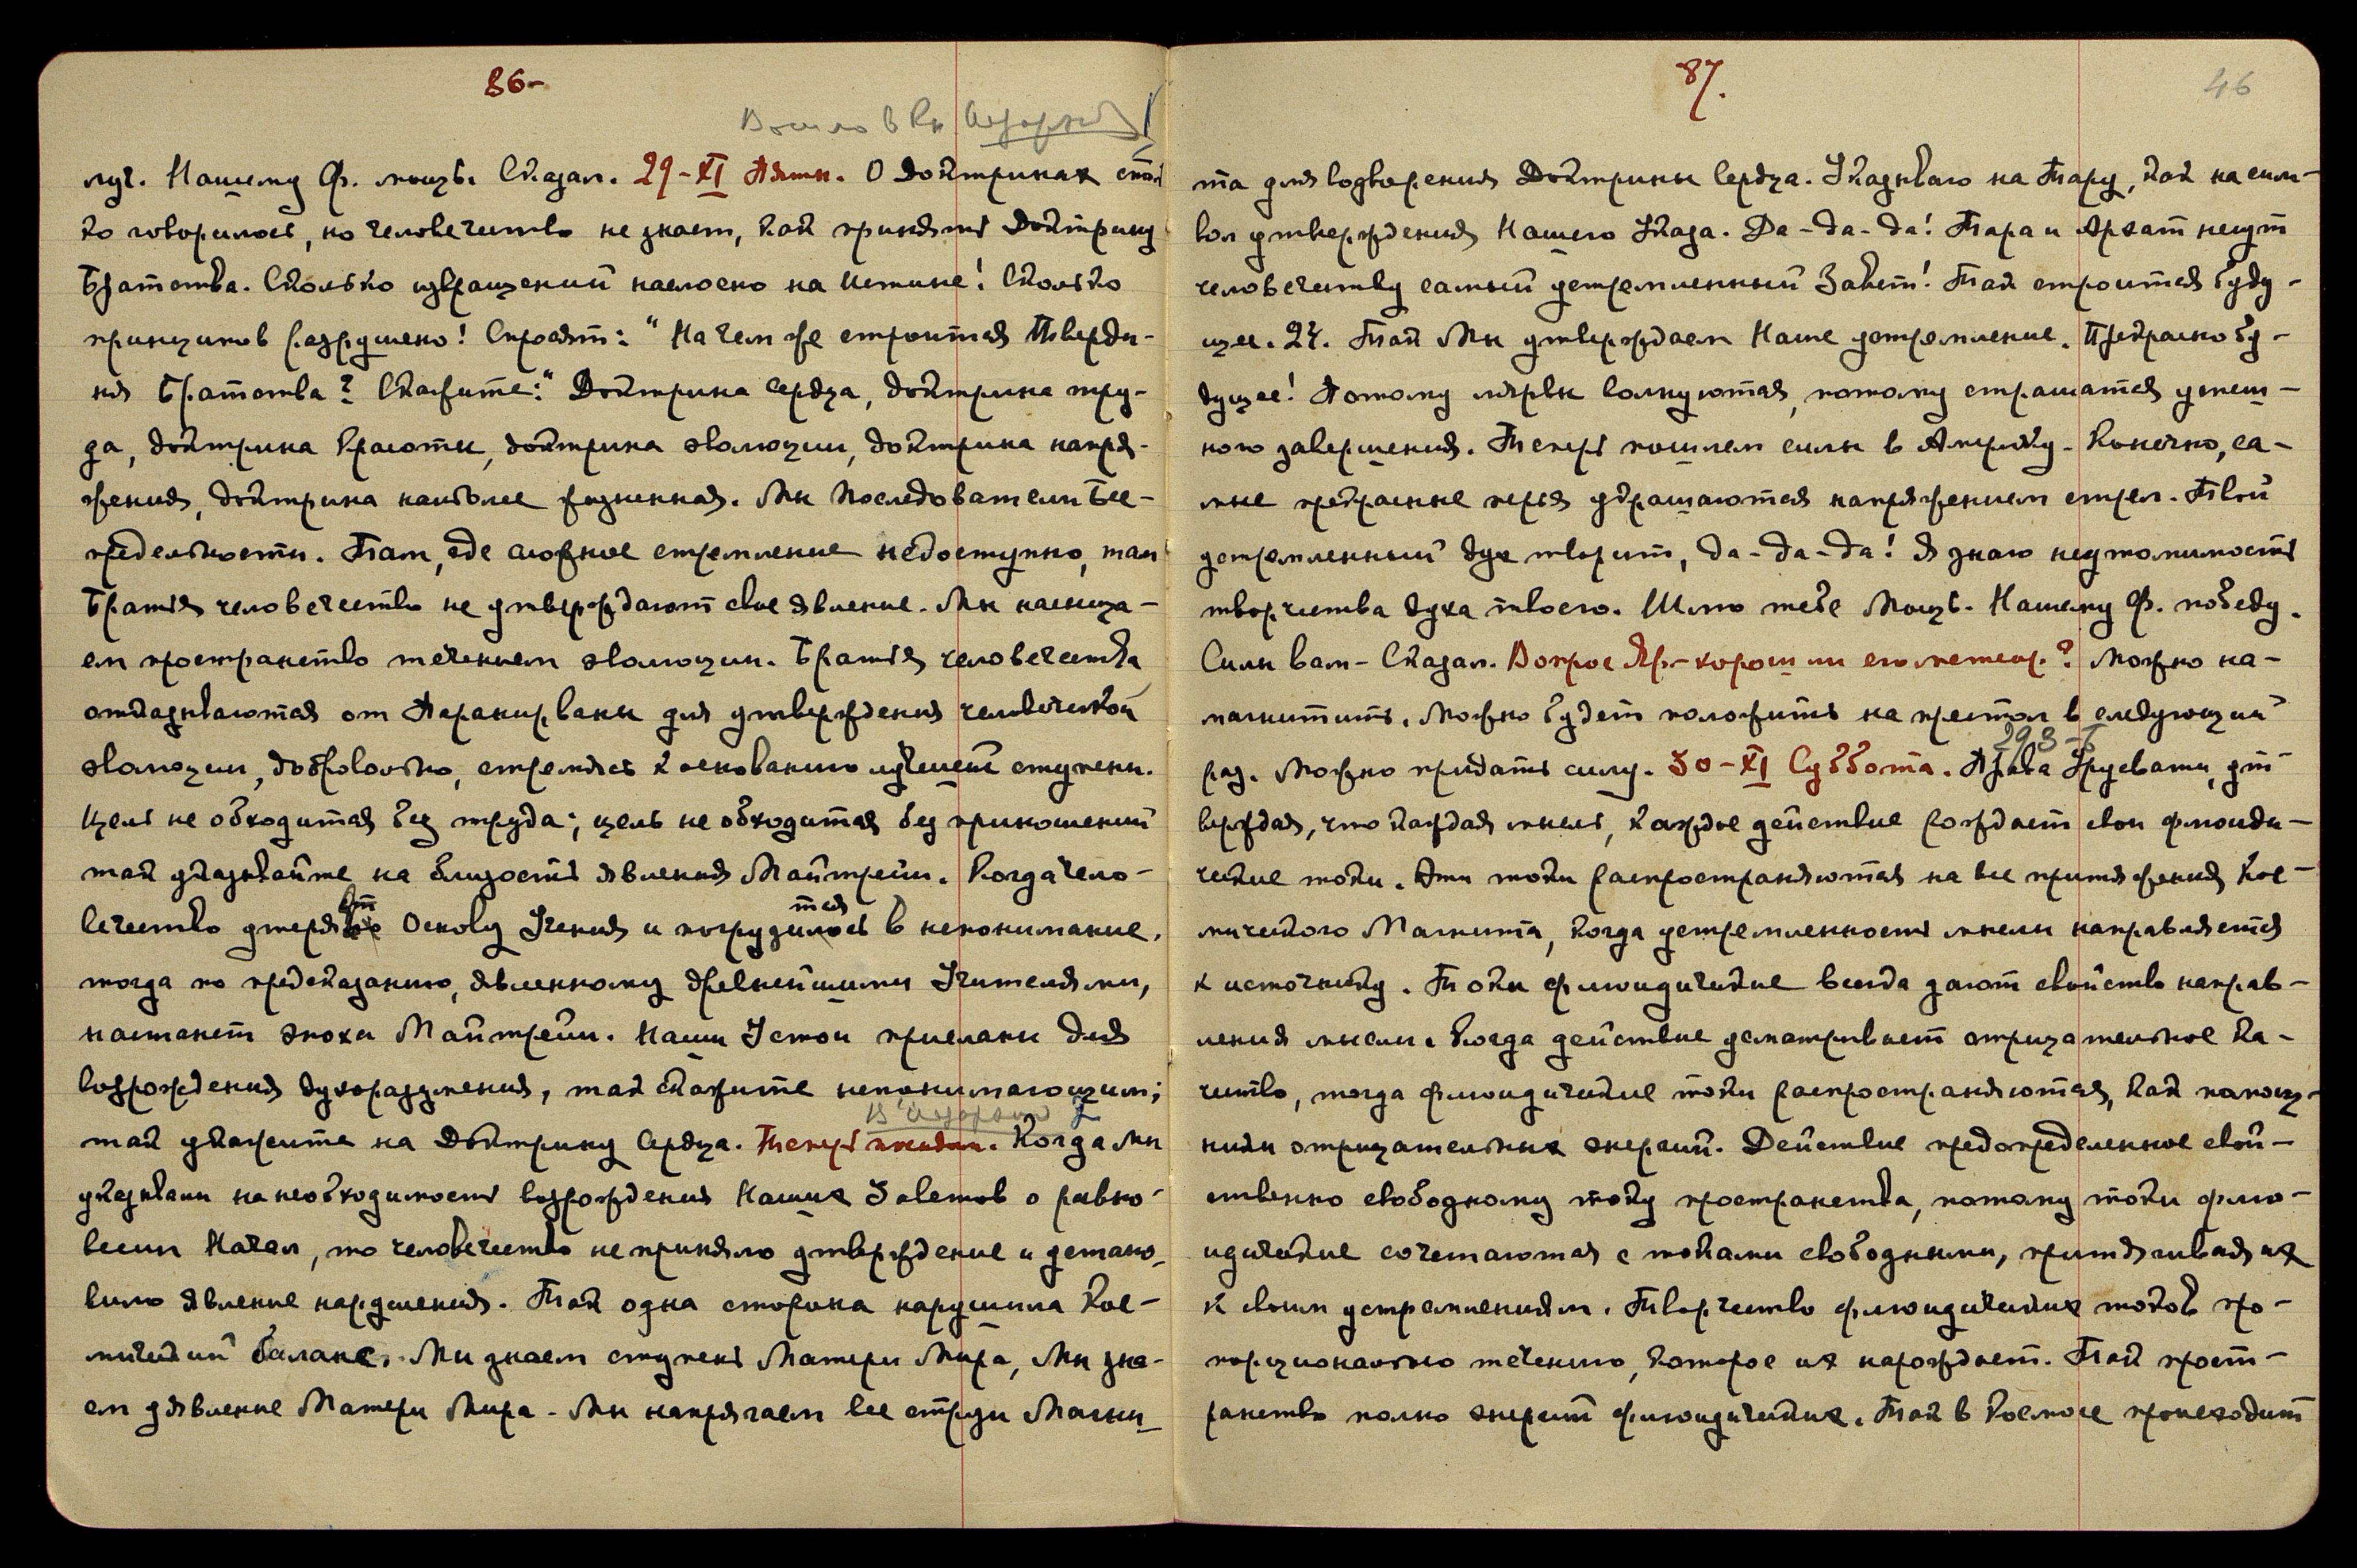 86-
Вошло в Кн
луч. Нашему Ф. мощь. Сказал. 29-XI Пятн. О доктринах столь
ко говорилось, но человечество не знает, как принять Доктрину
Братства. Сколько извращений наслоено на Истине! Сколько
принципов разрушено! Спросят: "На чем же строится Тверды-
ня Братства? Скажите:" Доктрина Сердца, доктрина тру-
да, доктрина Красоты, доктрина эволюции, доктрина напря-
жения, доктрина наиболее жизненная. Мы последователи Бес-
предельности. Там, где сложное стремление недоступно, там
Братья человечества не утверждают свое явление. Мы насыща-
ем пространство течением эволюции. Братья человечества
отказываются от Паранирваны для утверждения человеческой
эволюции, добровольно, стремясь к основанию лучшей ступени.
Цель не обходится без труда; цель не обходится без приношений
так указывайте на близость явления Майтрейи. Когда чело-
вечество утеряет Основу Учения и погрузится в непонимание,
тогда по предсказанию, явленному древнейшими Учителями,
настанет эпоха Майтрейи. Наши Устои присланы для
возрождения духоразумения, так скажите непонимающим;
так укажите на Доктрину Сердца. Теперь Когда Мы
указывали на необходимость возрождения Наших Заветов о равно-
весии Начал, то человечество не приняло утверждение и устано-
вило явление нарушения. Так одна сторона нарушила Кос-
мический баланс. Мы знаем ступень Матери Мира, Мы зна-
ем уявление Матери Мира - Мы напрягаем все струи Магни-
87.
46
та для водворения Доктрины Сердца. Указываю на Тару, как на сим-
вол утверждения Нашего Указа. Да-да-да! Тара и Архат несут
человечеству самый устремленный Завет! Так строится буду-
щее. 24. Так Мы утверждаем Наше устремление. Прекрасно бу-
дущее! Потому лярвы волнуются, потому страшатся успеш-
ного завершения. Теперь пошлем силы в Америку. Конечно, са-
мые прекрасные перья украшаются напряжением стрел. Твой
устремленный дух творит, да-да-да! Я знаю неутомимость
творчества духа твоего. Шлю тебе Мощь. Нашему Ф. победу.
Силы вам- Сказал. Вопрос Яр.- хорош ли его метеор.? Можно на-
магнитить. Можно будет положить на престол в следующий
29 3-
раз. Можно придать силу. 30-XI Суббота. Права Урусвати, ут-
верждая, что каждая мысль, каждое действие рождает свои флюиди-
ческие токи. Эти токи распространяются на все притяжения Кос-
мического Магнита, когда устремленность мысли направляется
к источнику. Токи флюидические всегда дают свойство направ-
ления мысли. Когда действие усматривает отрицательное ка-
чество, тогда флюидические токи распространяются, как помощ-
ники отрицательных энергий. Действие предопределенное свой-
ственно свободному току пространства, потому токи флю-
идические сочетаются с токами свободными, притягивая их
к своим устремлениям. Творчество флюидических токов про-
порционально течению, которое их нарождает. Так прост-
ранство полно энергий флюидических. Так в Космосе происходит